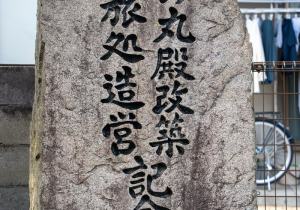 丸殿改築
旅処造営
記念